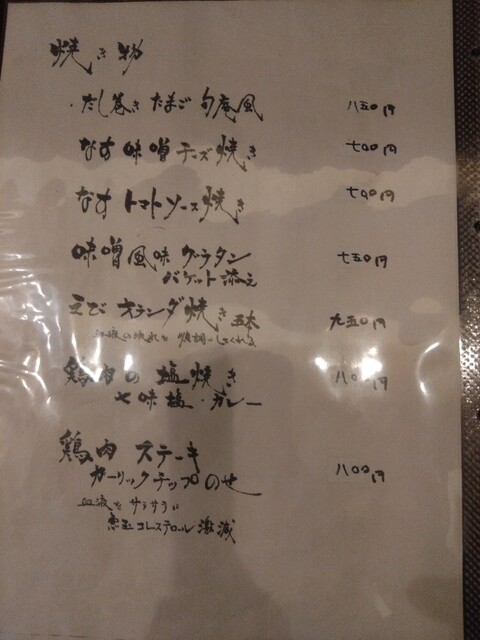 焼き物
・だし巻きたまご旬庵風 八五〇円
なす味噌チーズ焼き 七〇〇円
なすトマトソース焼き 七〇〇円
味噌風味グラタン 七五〇円
バゲット添え
えびオランダ焼き五本 九五〇円
血液の流れを
鶏肉の塩焼き 八〇〇円
七味塩・カレー
鶏肉ステーキ 八〇〇円
ガーリックチップのせ
血液をサラサラに
悪玉コレステロール激減